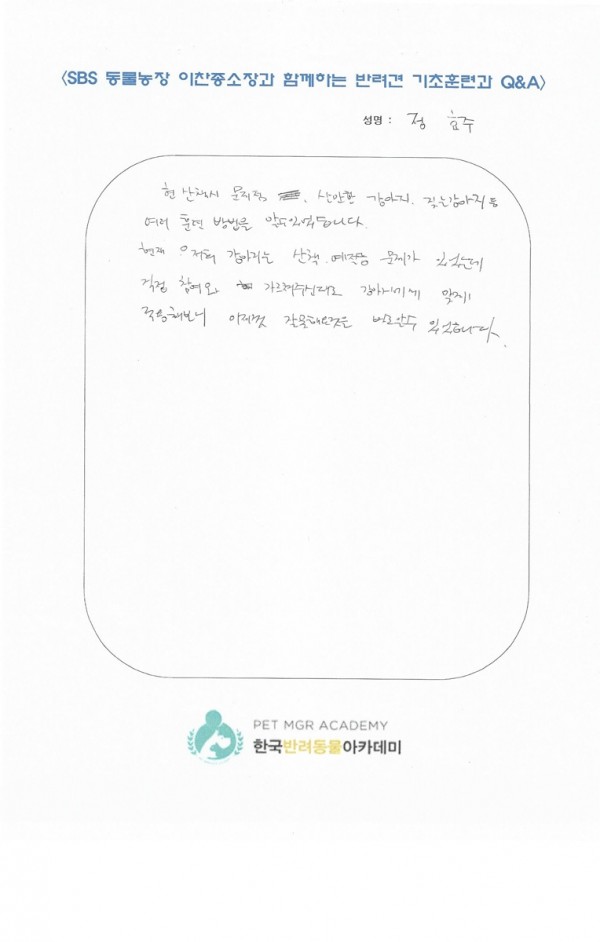 <SBS 동물농장 이찬종소장과 함께하는 반려견 기초훈련과 Q&A>
성명 : 정 효주
현 산책시 문제점, 산만한 강아지, 짖는강아지 등
여러 훈련 방법을 알수있었습니다.
현재 저희 강아지는 산책 문제가 있었는데
직접 참여와 가르쳐주신대로 강아지에게 맞게
적용해보니 잘못해온것은 바로알수 있었습니다.
PET MGR ACADEMY
한국반려동물아카데미